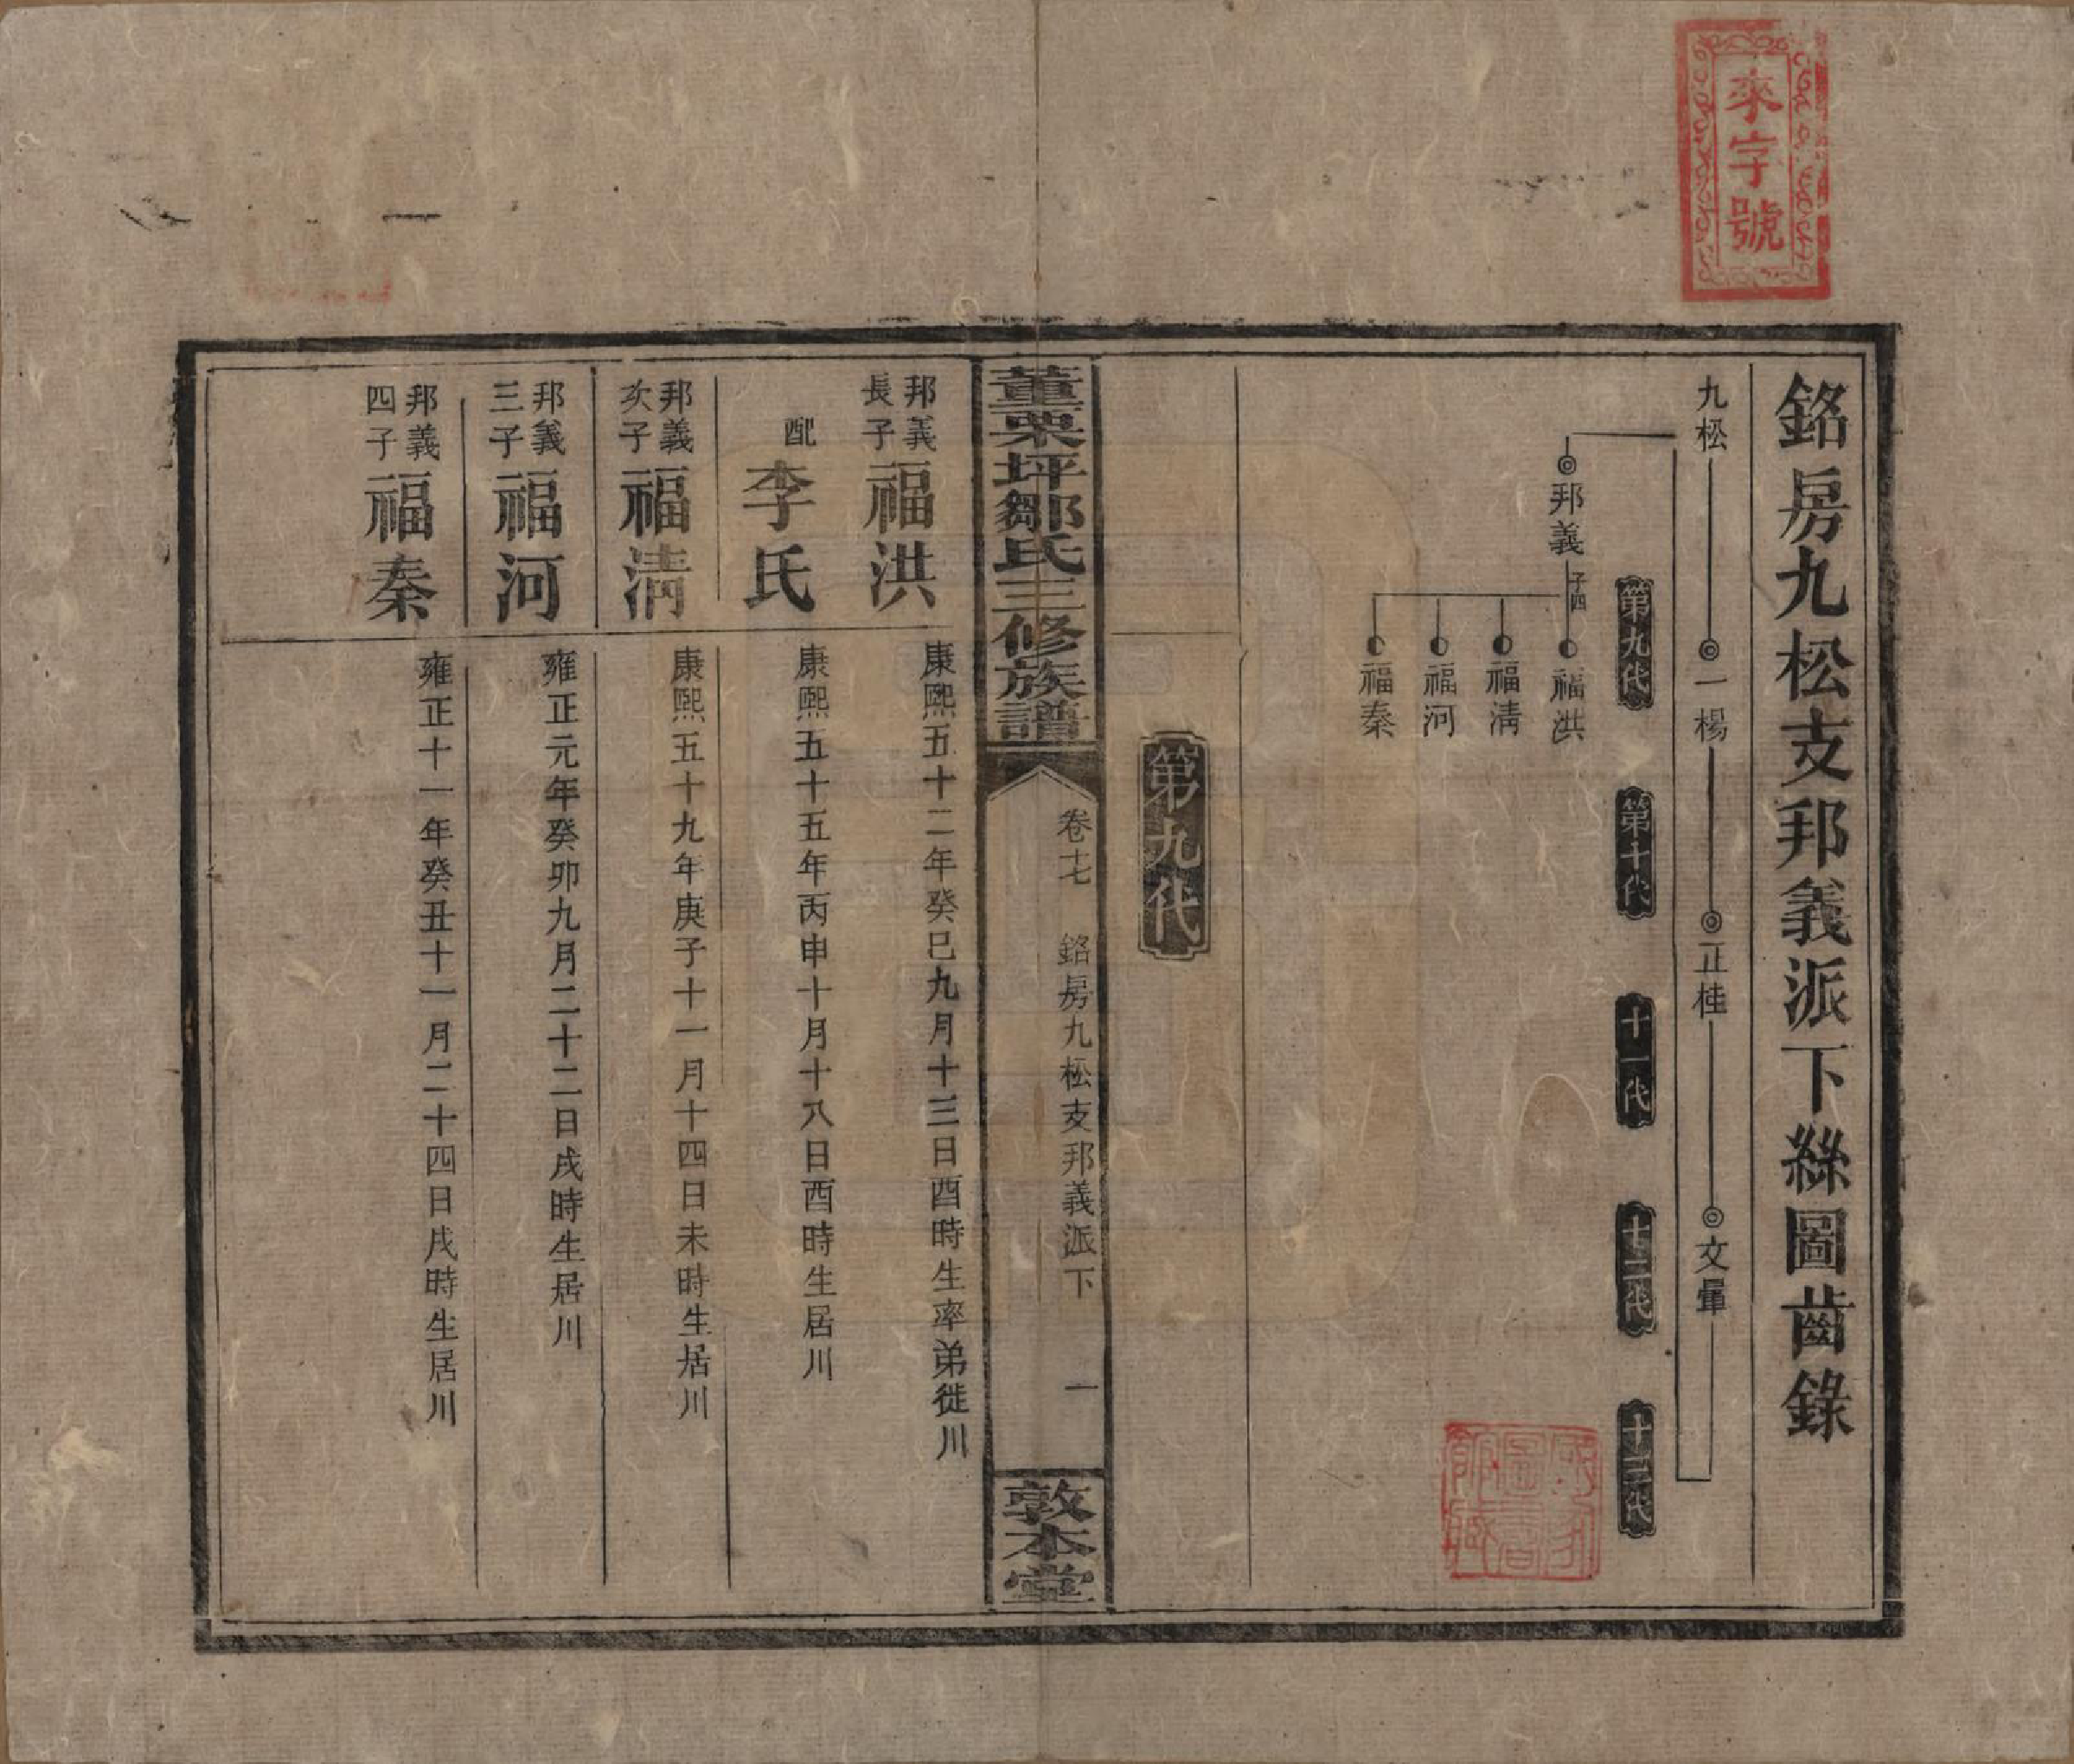 來字號
銘房九松支邦義派下絲圖齒錄
九松 一楊 正桂 文暈
第九代 第十代 十一代 十二代 十三代
邦義 子四
福洪
福清
福河
福秦
第九代
董栗坪鄒氏三修族譜
卷十七 銘房九松支邦義派下 一
敦本堂
邦義長子 福洪 康熙五十二年癸巳九月十三日酉時生率弟徙川
配 李氏 康熙五十五年丙申十月十八日酉時生居川
邦義次子 福清 康熙五十九年庚子十一月十四日未時生居川
邦義三子 福河 雍正元年癸卯九月二十二日戌時生居川
邦義四子 福秦 雍正十一年癸丑十一月二十四日戌時生居川